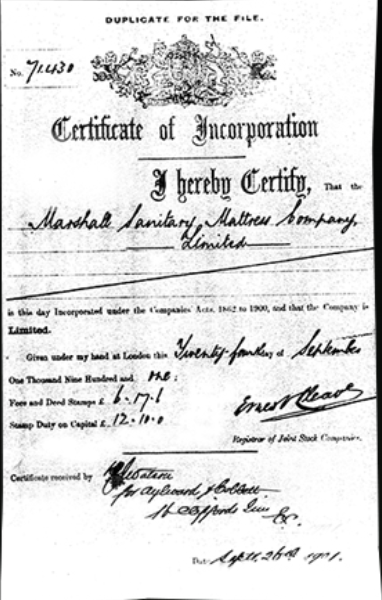 DUPLICATE FOR THE FILE.
No. 71430
Certificate of Incorporation
I hereby Certify, That the
Marshall Sanitary Mattress Company,
Limited
is this day Incorporated under the Companies' Acts, 1862 to 1900, and that the Company is
Limited.
Given under my hand at London this Twenty-fourth day of September
One Thousand Nine Hundred and one.
Fees and Deed Stamps £ 6.17.6
Stamp Duty on Capital £ 12.10.0
Ernest Cleave
Registrar of Joint Stock Companies.
Certificate received by Watson
for Aylward &
Inn
Date Sept. 26th 1901.